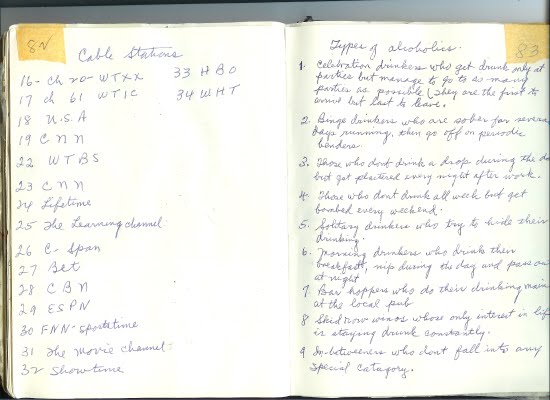 82
Cable Stations
16- ch 20- WTXX 33 HBO
17 ch 61 WTIC 34 WHT
18 U.S.A
19 CNN
22 WTBS
23 CNN
24 Lifetime
25 The Learning channel
26 C- Span
27 Bet
28 CBN
29 ESPN
30 FNN- sportstime
31 The movie channel:
32 Showtime
83
Types of alcoholics.
1. Celebration drinkers who get drunk only at
parties but manage to go to as many
parties as possible (They are the first to
arrive but last to leave.
2. Binge drinkers who are sober for severa
days running, then go off on periodic
benders.
3. Those who dont drink a drop during the da
but get plastered every night after work.
4. Those who dont drink all week but get
bombed every weekend.
5. Solitary drinkers who try to hide their
drinking.
6. Morning drinkers who drink their
breakfast, nip during the day and pass out
at night
7. Bar hoppers who do their drinking main
at the local pub
8 Skid row winos whose only interest in lif
is staying drunk constantly.
9 In-betweeners who dont fall into any
special catagory.